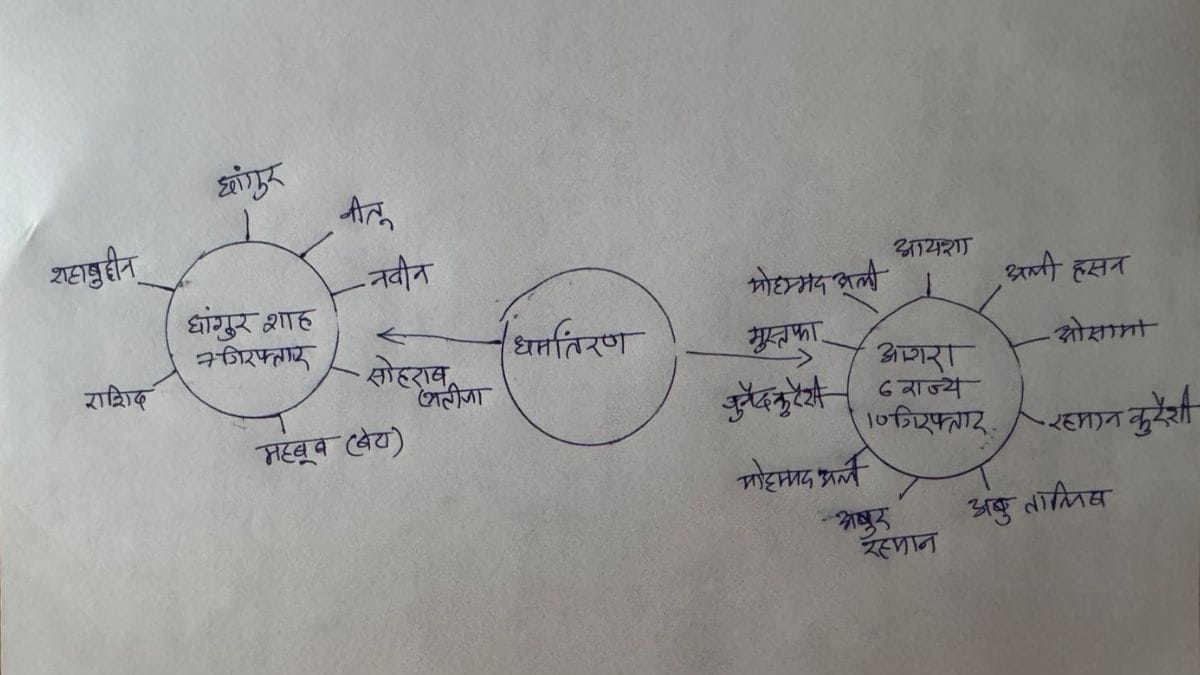 छांगुर
नीतू
नवीन
सोहराब
भतीजा
महबूब (बेटा)
राशिद
शहाबुद्दीन
छांगुर शाह
7 गिरफ्तार
धर्मांतरण
आयशा
अली हसन
ओसामा
रहमान कुरैशी
अबु तालिब
अबुर
रहमान
मोहम्मद अली
जुनैद कुरैशी
मुस्तफा
मोहम्मद अली
आगरा
6 राज्य
10 गिरफ्तार